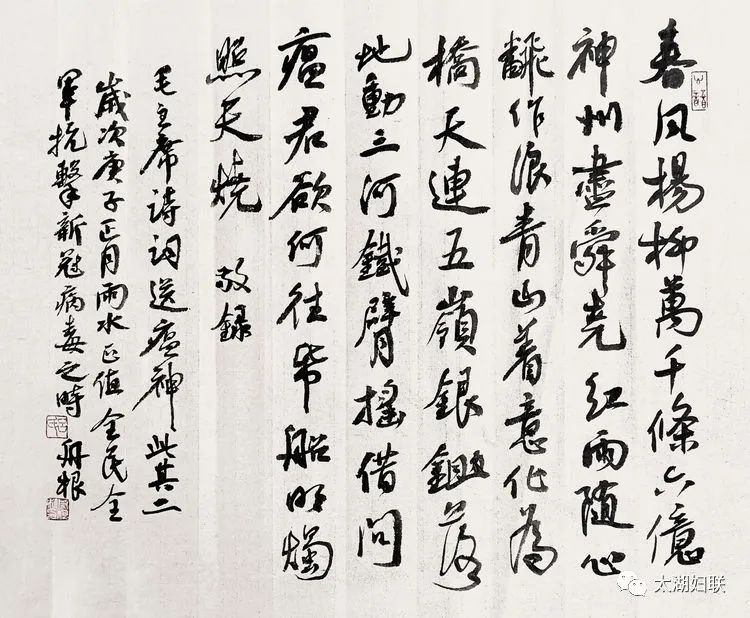 春风楊柳萬千條六億
神州盡舜堯紅雨隨心
翻作浪青山着意化為
橋天連五嶺銀鋤落
地動三河鐵臂搖借問
瘟君欲何往帋船明燭
照天燒 敬録
毛主席詩詞送瘟神 此其二
歲次庚子正月雨水正值全民全
軍抗擊新冠病毒之時
太湖妇联